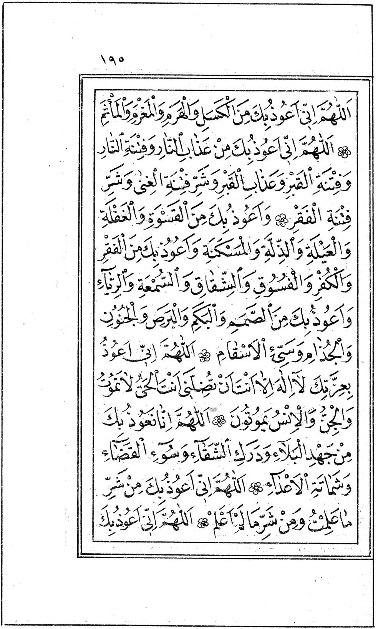 ١٩٥
اَللّٰهُمَّ اِنّٖى اَعُوذُ بِكَ مِنَ الْكَسَلِ وَالْهَرَمِ وَالْمَغْرَمِ وَالْمَأْثَمِ
اَللّٰهُمَّ اِنّٖى اَعُوذُ بِكَ مِنْ عَذَابِ النَّارِ وَفِتْنَةِ النَّارِ
وَفِتْنَةِ الْقَبْرِ وَعَذَابِ الْقَبْرِ وَشَرِّ فِتْنَةِ الْغِنٰى وَشَرِّ
فِتْنَةِ الْفَقْرِ وَاَعُوذُ بِكَ مِنَ الْقَسْوَةِ وَالْغَفْلَةِ
وَالْعَيْلَةِ وَالذِّلَّةِ وَالْمَسْكَنَةِ وَاَعُوذُ بِكَ مِنَ الْفَقْرِ
وَالْكُفْرِ وَالْفُسُوقِ وَالشِّقَاقِ وَالسُّمْعَةِ وَالرِّيَاءِ
وَاَعُوذُ بِكَ مِنَ الصَّمَمِ وَالْبَكَمِ وَالْبَرَصِ وَالْجُنُونِ
وَالْجُذَامِ وَسَيِّئِ الْاَسْقَامِ اَللّٰهُمَّ اِنّٖى اَعُوذُ
بِعِزَّتِكَ لَا اِلٰهَ اِلَّا اَنْتَ اَنْ تُضِلَّنٖى اَنْتَ الْحَىُّ لَا تَمُوتُ
وَالْجِنُّ وَالْاِنْسُ يَمُوتُونَ اَللّٰهُمَّ اِنَّا نَعُوذُ بِكَ
مِنْ جَهْدِ الْبَلَاءِ وَدَرَكِ الشَّقَاءِ وَسُوءِ الْقَضَاءِ
وَشَمَاتَةِ الْاَعْدَاءِ اَللّٰهُمَّ اِنّٖى اَعُوذُ بِكَ مِنْ شَرِّ
مَا عَلِمْتُ وَمِنْ شَرِّ مَا لَمْ اَعْلَمْ اَللّٰهُمَّ اِنّٖى اَعُوذُ بِكَ